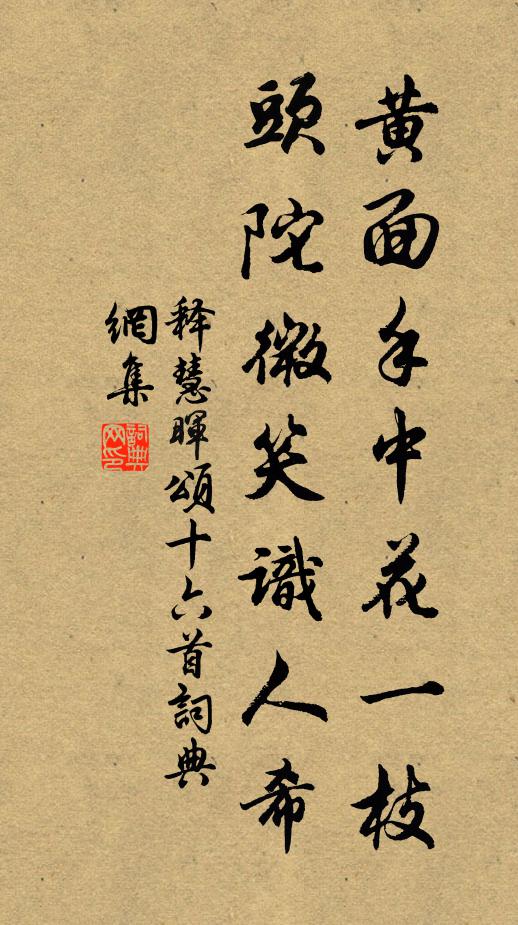 黃面手中花一枝
頭陀微笑識人希
释慧暉頌十六首詞典
網集
詞典網印